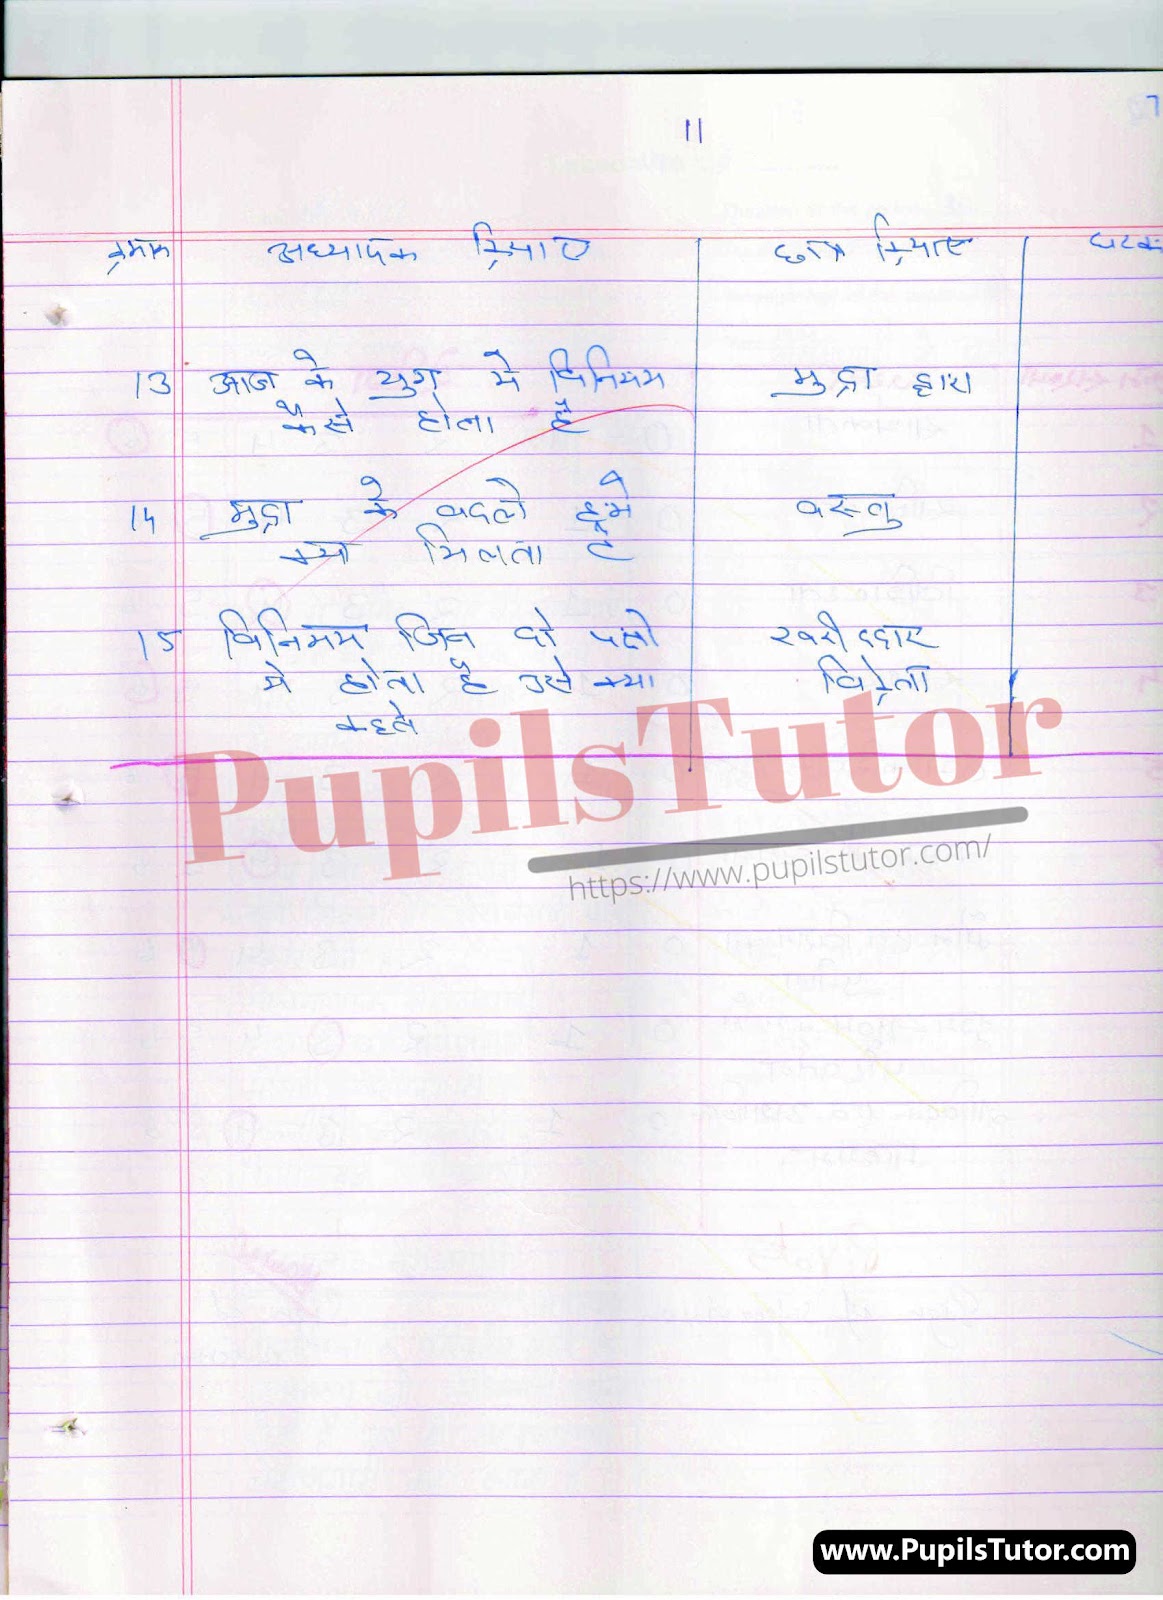 11
क्रमांक अध्यापक क्रियाएं छात्र क्रियाएं घटक
13 आज के युग मे विनिमय मुद्रा द्वारा
कैसे होता है
14 मुद्रा के बदले हमे वस्तु
क्या मिलता है
15 विनिमय जिन दो पक्षो खरीददार
मे होता है उसे क्या विक्रेता
कहते
PupilsTutor
https://www.pupilstutor.com/
www.PupilsTutor.com